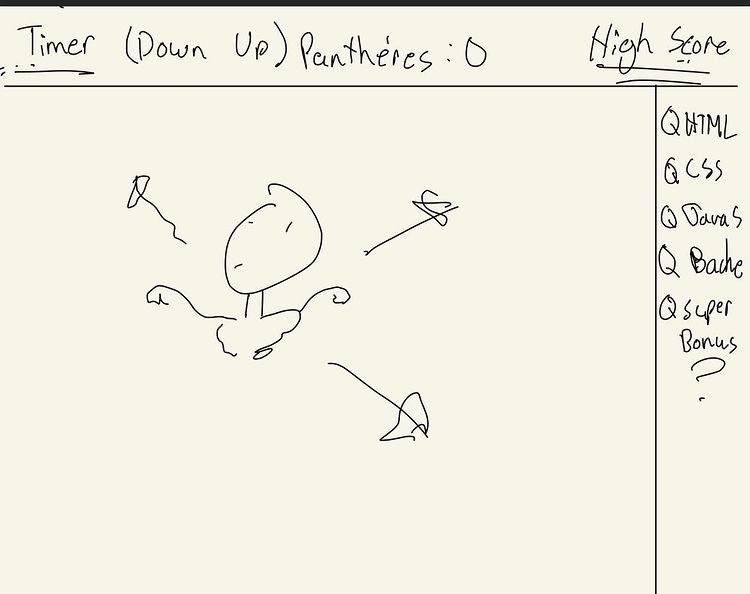 Timer (Down Up) Panthéres : 0 High Score
Q HTML
Q CSS
Q JavaS
Q Bache
Q super
Bonus
?